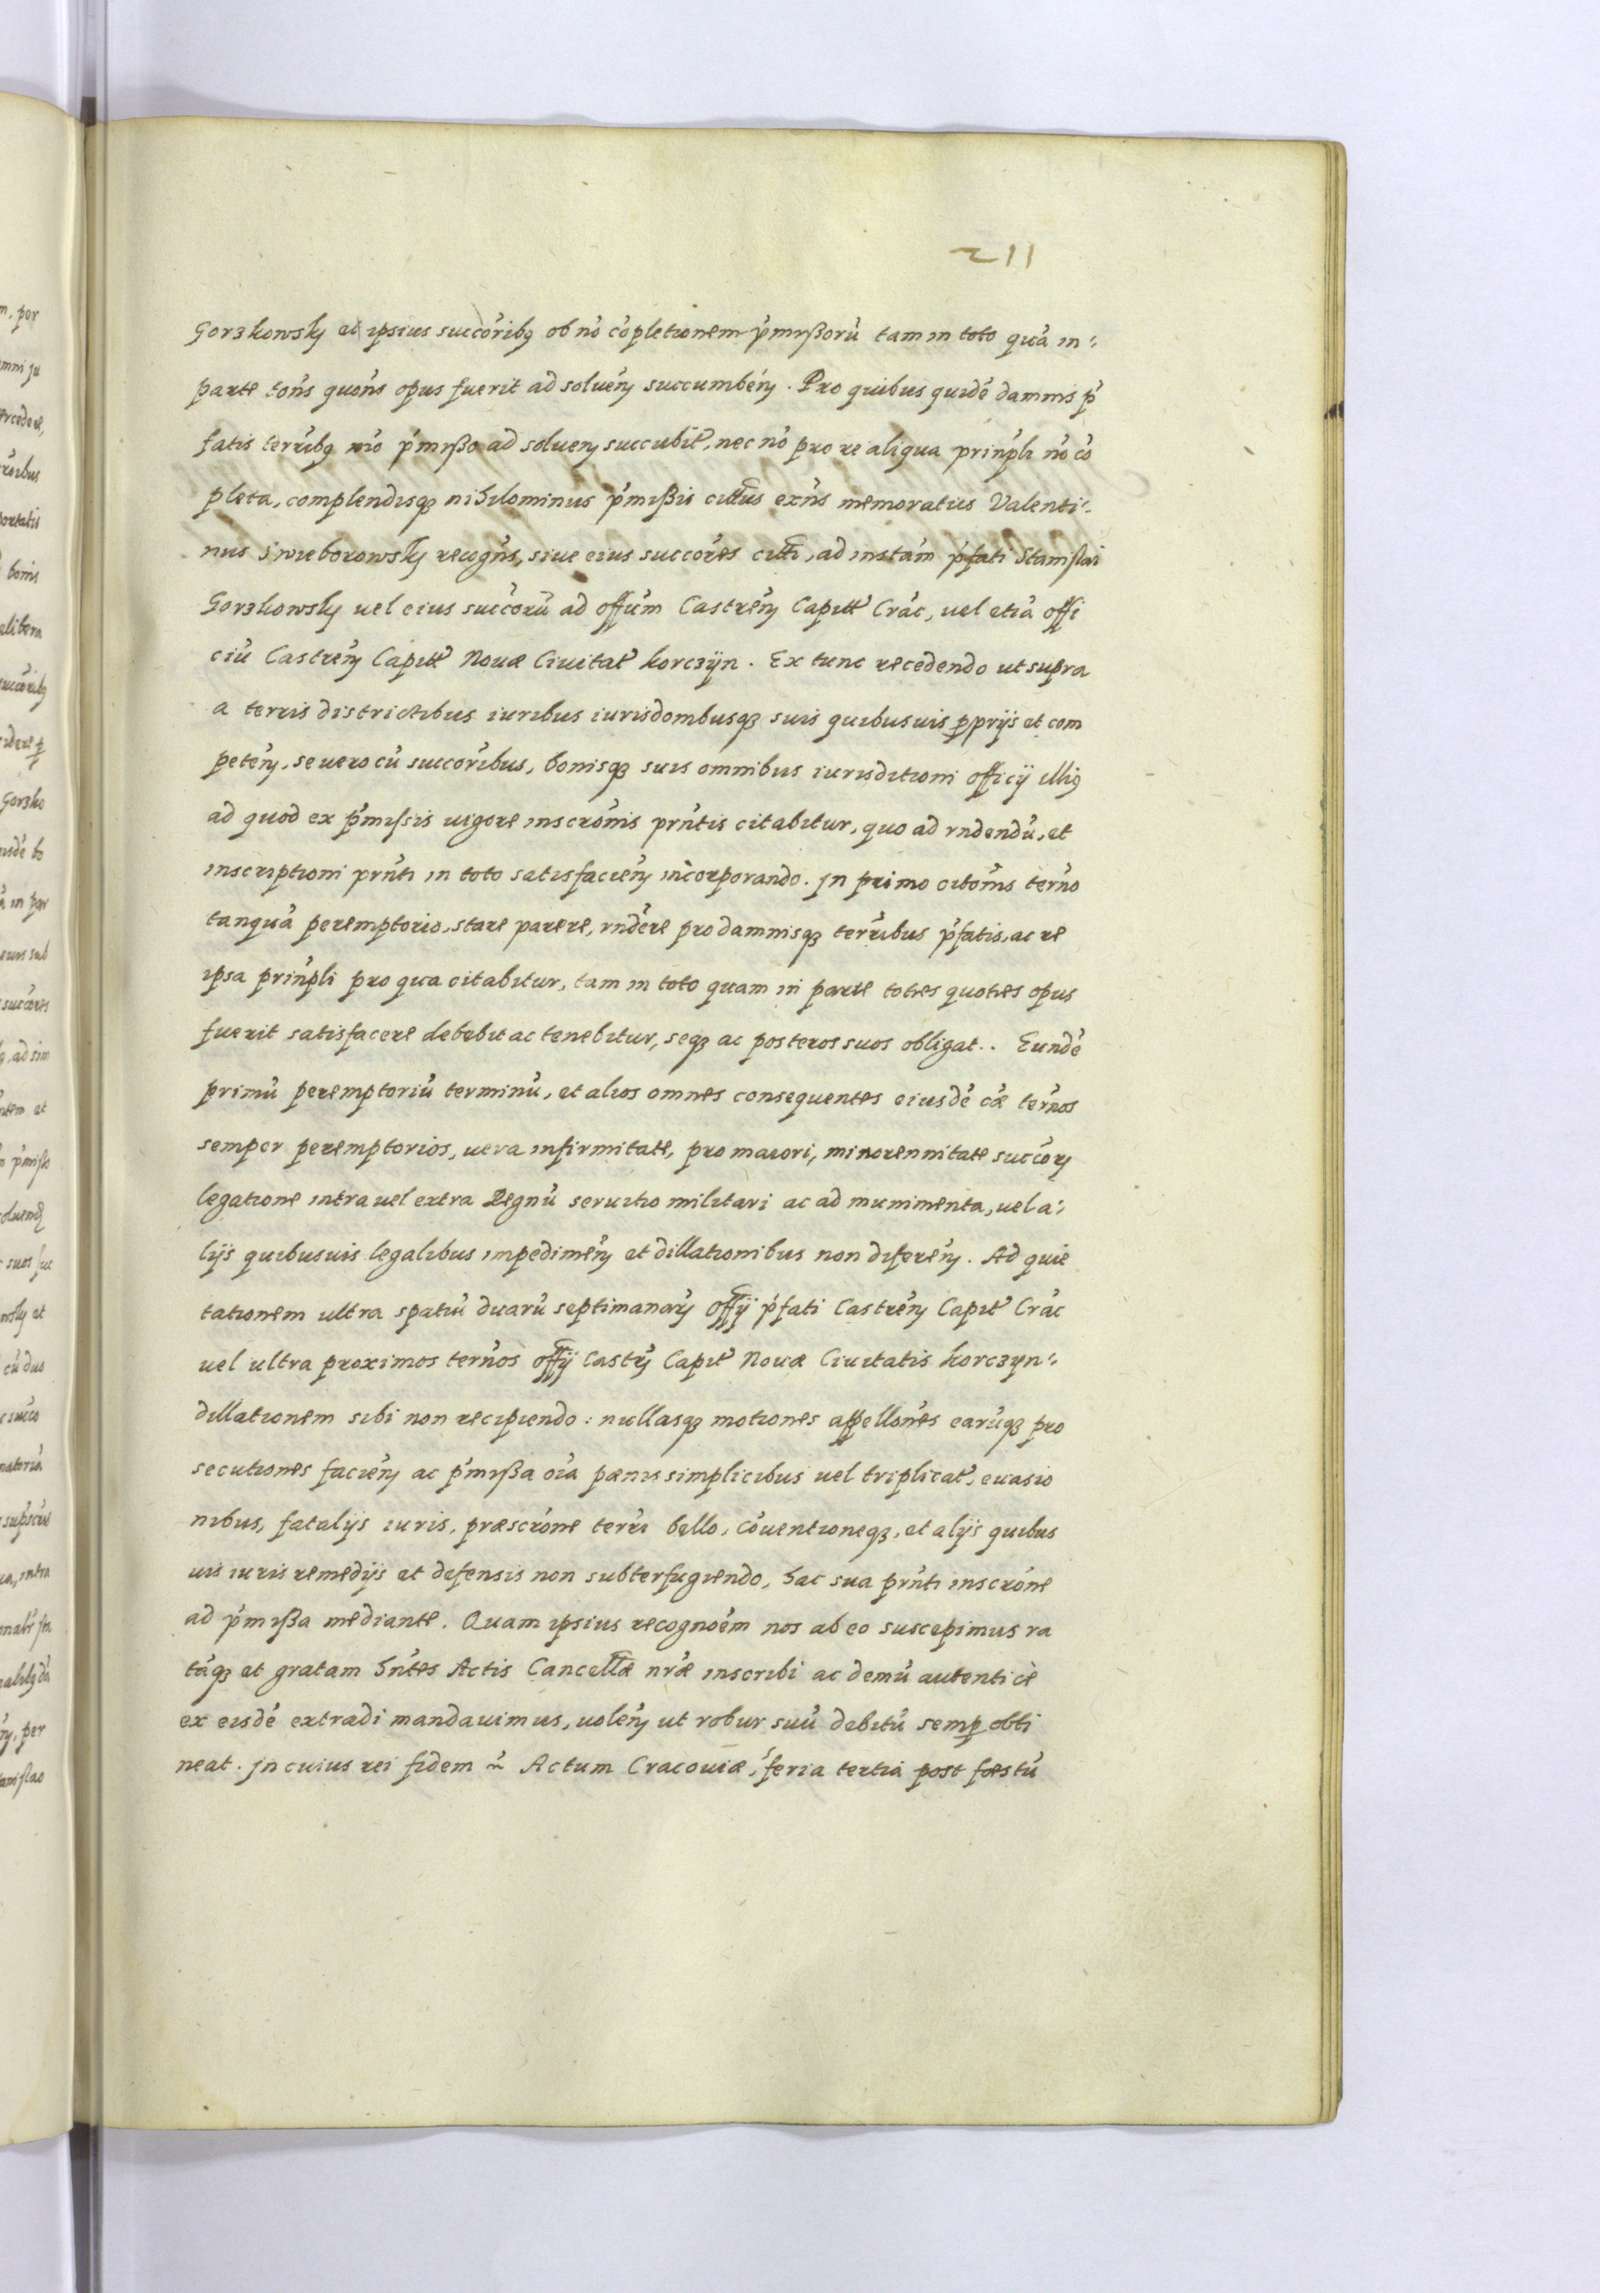 211
Gorzkowsky et ipsius succōribȝ ob nō cōpletionem p̄mißorū tam in toto quā in-
parte tōns quōns opus fuerit ad soluēn succumbēn. Pro quibus quidē damnis p̄
fatis terrībȝ mō p̄mißo ad soluen succubit, nec nō pro re aliqua prīnpli nō cō
pleta, complendisqȝ nihilominus p̄mißis cittus exn̄s memoratus Valenti-
nus Swieborowsky recogn̄s, siue eius succōres citti, ad instām p̄fati Stanislai
Gorzkowsky uel eius succōrū ad offūm Castrēn Capitt Crāc, uel etiā offi
ciū Castrēn Capitt Nouæ Ciuitat korczÿn. Ex tunc recedendo ut supra
a terris districtibus iuribus iurisdombusqȝ suis quibusuis pprijs et com
petēn, se uero cū succōribus, bonisqȝ suis omnibus iurisditioni officij illiȝ
ad quod ex p̄missis uigore inscrōnis prn̄tis citabitur, quo ad rndendū, et
inscriptioni prn̄ti in toto satisfaciēn incorporando. Jn primo citōnis terno
tanquā peremptorio, stare parere, rndēre pro damnisqȝ terrībus p̄fatis, ac re
ipsa prīnpli pro qua citabitur, tam in toto quam in parte toties quoties opus
fuerit satisfacere debebit ac tenebitur, seqȝ ac posteros suos obligat.. Eundē
primū peremptoriū terminū, et alios omnes consequentes eiusdē cǣ tern̄os
semper peremptorios, uera infirmitate, pro maiori, minorennitate succōrȝ
legatione intra uel extra Regnū seruitio militari ac ad munimenta, uel a-
lijs quibusuis legalibus impedimēn et dillationibus non diferēn. Ad quie
tationem ultra spatiū duarū septimanarȝ offij p̄fati Castrēn Capit Crāc
uel ultra proximos tern̄os offij Castrȝ Capit Nouæ Ciuitatis korczyn-
dillationem sibi non recipiendo: nullasqȝ motiones appellōnes earūqȝ pro
secutiones faciēn ac p̄mißa oīa pænis simplicibus uel triplicat, euasio
nibus, fatalijs iuris, præscrōne terrī bello, cōuentioneqȝ, et alijs quibus
uis iuris remedijs et defensis non subterfugiendo, hac sua prn̄ti inscrōne
ad p̄mißa mediante. Quam ipsius recognoēm nos ab eo suscepimus ra
tāqȝ et gratam hn̄tes Actis Cancellæ nr̄æ inscribi ac demū autenticè
ex eisdē extradi mandauimus, uolēn ut robur suū debitū semp obti
neat. Jn cuius rei fidem ~ Actum Cracouiæ, feria tertia post fæstū